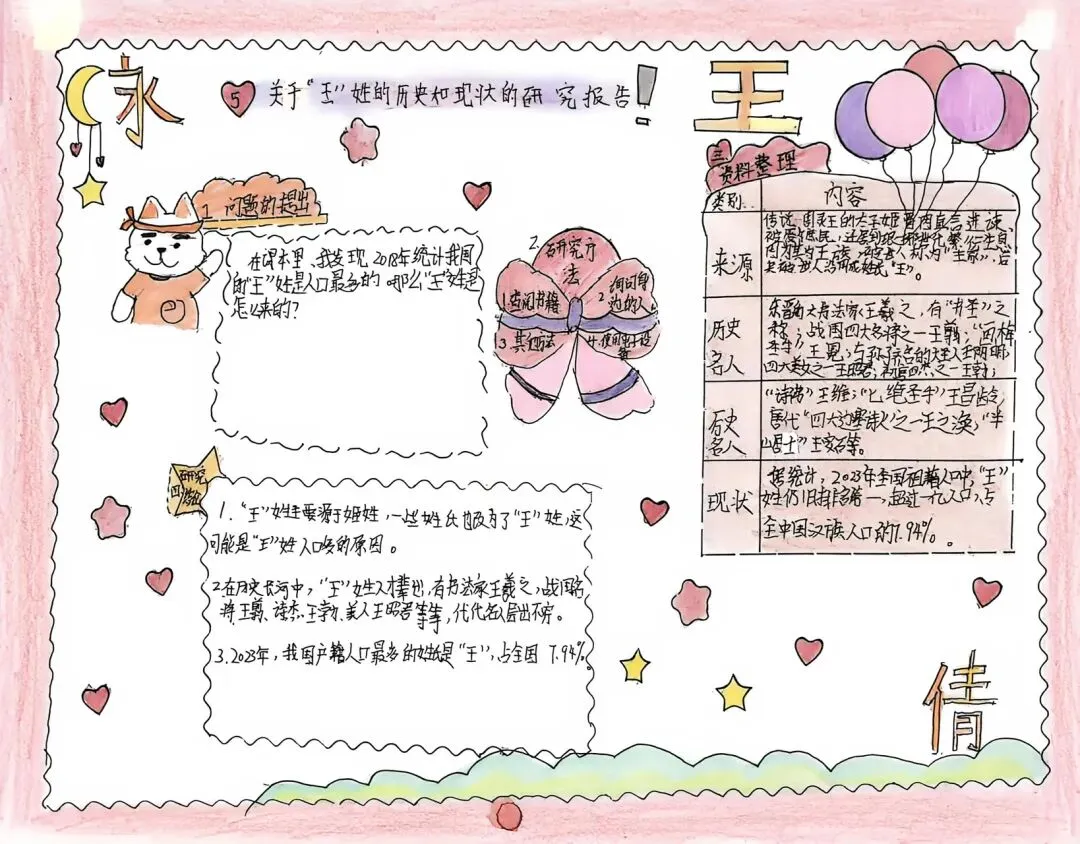 永
5 关于“王”姓的历史和现状的研究报告!
王
1 问题的提出
在课本里,我发现,2018年统计我国
的“王”姓是人口最多的 那么“王”姓是
怎么来的?
2. 研究方
法
1.查阅书籍
2.询问身
边的人
3.其他方法
4.使用电子设
备
三 资料整理
类别 内容
来源
传说,周灵王的太子姬晋因直言进谏
被废为庶民,
因为其为王族,
历史
名人
东晋的大书法家王羲之,有“书圣”之
称;战国四大名将之一王翦;
四大美女之一王昭君;初唐四杰之一王勃;
历史
名人
“诗佛”王维;“七绝圣手”王昌龄,
唐代“四大边塞诗人”之一王之涣,“半
山居士”王安石等。
现状
据统计,2023年全国户籍人口中,“王”
姓仍旧排名第一,超过一亿人口,占
全中国汉族人口的7.94%。
四 研究结论
1.“王”姓主要源于姬姓,一些姓氏也改为了“王”姓,这
可能是“王”姓人口多的原因。
2.在历史长河中,“王”姓人才辈出,有书法家王羲之,战国名
将王翦、诗杰王勃、美人王昭君等等,代代名人层出不穷。
3.2023年,我国户籍人口最多的姓氏是“王”,占全国7.94%。
倩